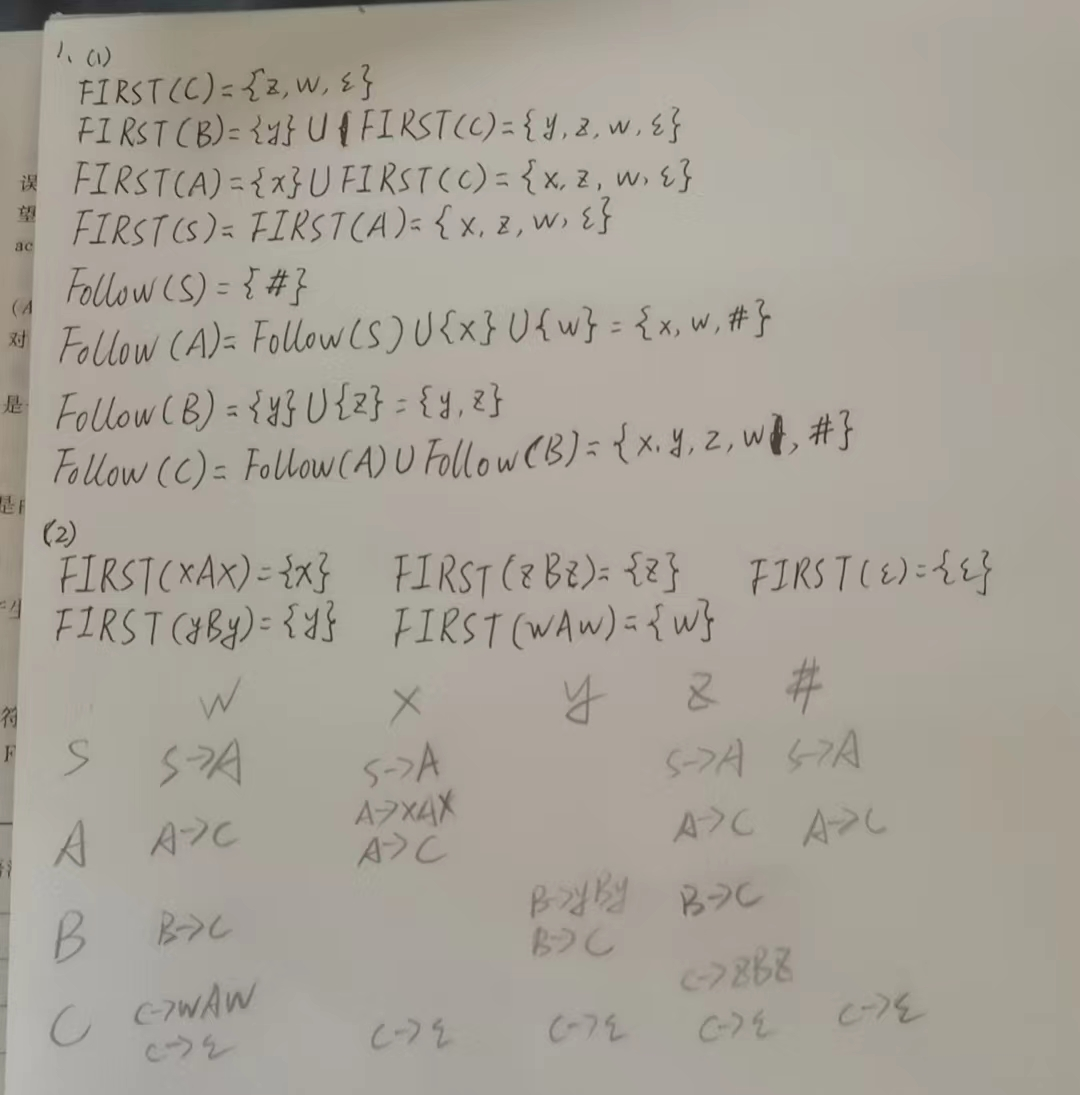 1、(1)
FIRST(C)={z,w,ε}
FIRST(B)={y}∪FIRST(C)={y,z,w,ε}
FIRST(A)={x}∪FIRST(C)={x,z,w,ε}
FIRST(S)=FIRST(A)={x,z,w,ε}
Follow(S)={#}
Follow(A)=Follow(S)∪{x}∪{w}={x,w,#}
Follow(B)={y}∪{z}={y,z}
Follow(C)=Follow(A)∪Follow(B)={x,y,z,w,#}
(2)
FIRST(xAx)={x} FIRST(zBz)={z} FIRST(ε)={ε}
FIRST(yBy)={y} FIRST(wAw)={w}
w x y z #
S S→A S→A S→A S→A
A→xAx
A A→C A→C A→C A→C
B→yBy
B B→C B→C B→C
C→wAw C→zBz
C C→ε C→ε C→ε C→ε C→ε
误
望
ac
(A
对
是
是
符
F